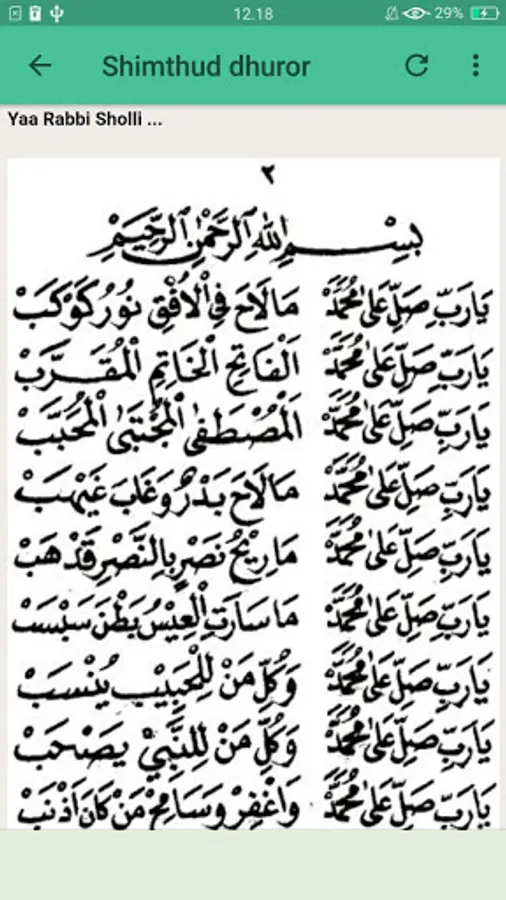 12.18
29%
Shimthud dhuror
Yaa Rabbi Sholli ...
٢
بِسْمِ اللهِ الرَّحْمٰنِ الرَّحِيْمِ
يَارَبِّ صَلِّ عَلىٰ مُحَمَّدْ مَا لَاحَ فِي الْأُفْقِ نُوْرُ كَوْكَبْ
يَارَبِّ صَلِّ عَلىٰ مُحَمَّدْ اَلْفَاتِحِ الْخَاتِمِ الْمُقَرَّبْ
يَارَبِّ صَلِّ عَلىٰ مُحَمَّدْ اَلْمُصْطَفىٰ الْمُجْتَبىٰ الْمُحَبَّبْ
يَارَبِّ صَلِّ عَلىٰ مُحَمَّدْ مَا لَاحَ بَدْرٌ وَغَابَ غَيْهَبْ
يَارَبِّ صَلِّ عَلىٰ مُحَمَّدْ مَا رِيْحُ نَصْرٍ بِالنَّصْرِ قَدْ هَبْ
يَارَبِّ صَلِّ عَلىٰ مُحَمَّدْ مَا سَارَتِ الْعِيْسُ بَطْنَ سَبْسَبْ
يَارَبِّ صَلِّ عَلىٰ مُحَمَّدْ وَكُلِّ مَنْ لِلْحَبِيْبِ يُنْسَبْ
يَارَبِّ صَلِّ عَلىٰ مُحَمَّدْ وَكُلِّ مَنْ لِلنَّبِيْ يَصْحَبْ
يَارَبِّ صَلِّ عَلىٰ مُحَمَّدْ وَاغْفِرْ وَسَامِحْ مَنْ كَانَ اَذْنَبْ